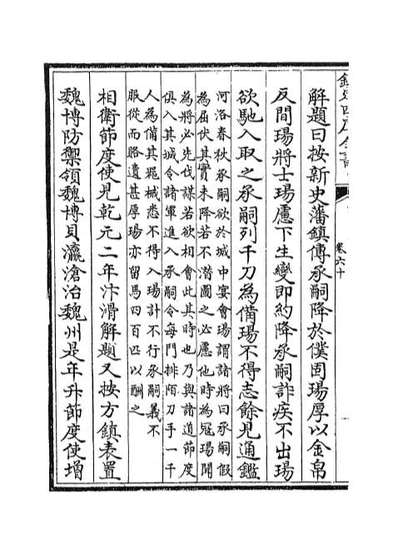 解題曰按新史藩鎮傳承嗣降於僕固瑒厚以金帛
反間瑒將士瑒慮下生變即約降承嗣詐疾不出瑒
欲馳入取之承嗣列千刀為備瑒不得志餘見通鑑
河洛春秋承嗣欲於城中宴會瑒謂諸將曰承嗣假
為屈伏其實未降若不潛圖之必慮他時為冦瑒開
為將必先伐謀若欲相會此其時也乃與諸道節度
俱入其城令諸軍進入承嗣令每門排陌刀手一千
人為備其羈絏悉不得入瑒計不行承嗣義不
服從而賂遺甚厚瑒亦留馬四百匹以酬之
相衛節度使見乾元二年汴滑解題又按方鎮表置
魏博防禦領魏博貝瀛滄治魏州是年升節度使增
卷六十